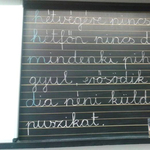 hétvégére nincs
hétfőn nincs d
mindenki pih
gyul
dia néni küld
puszikat.